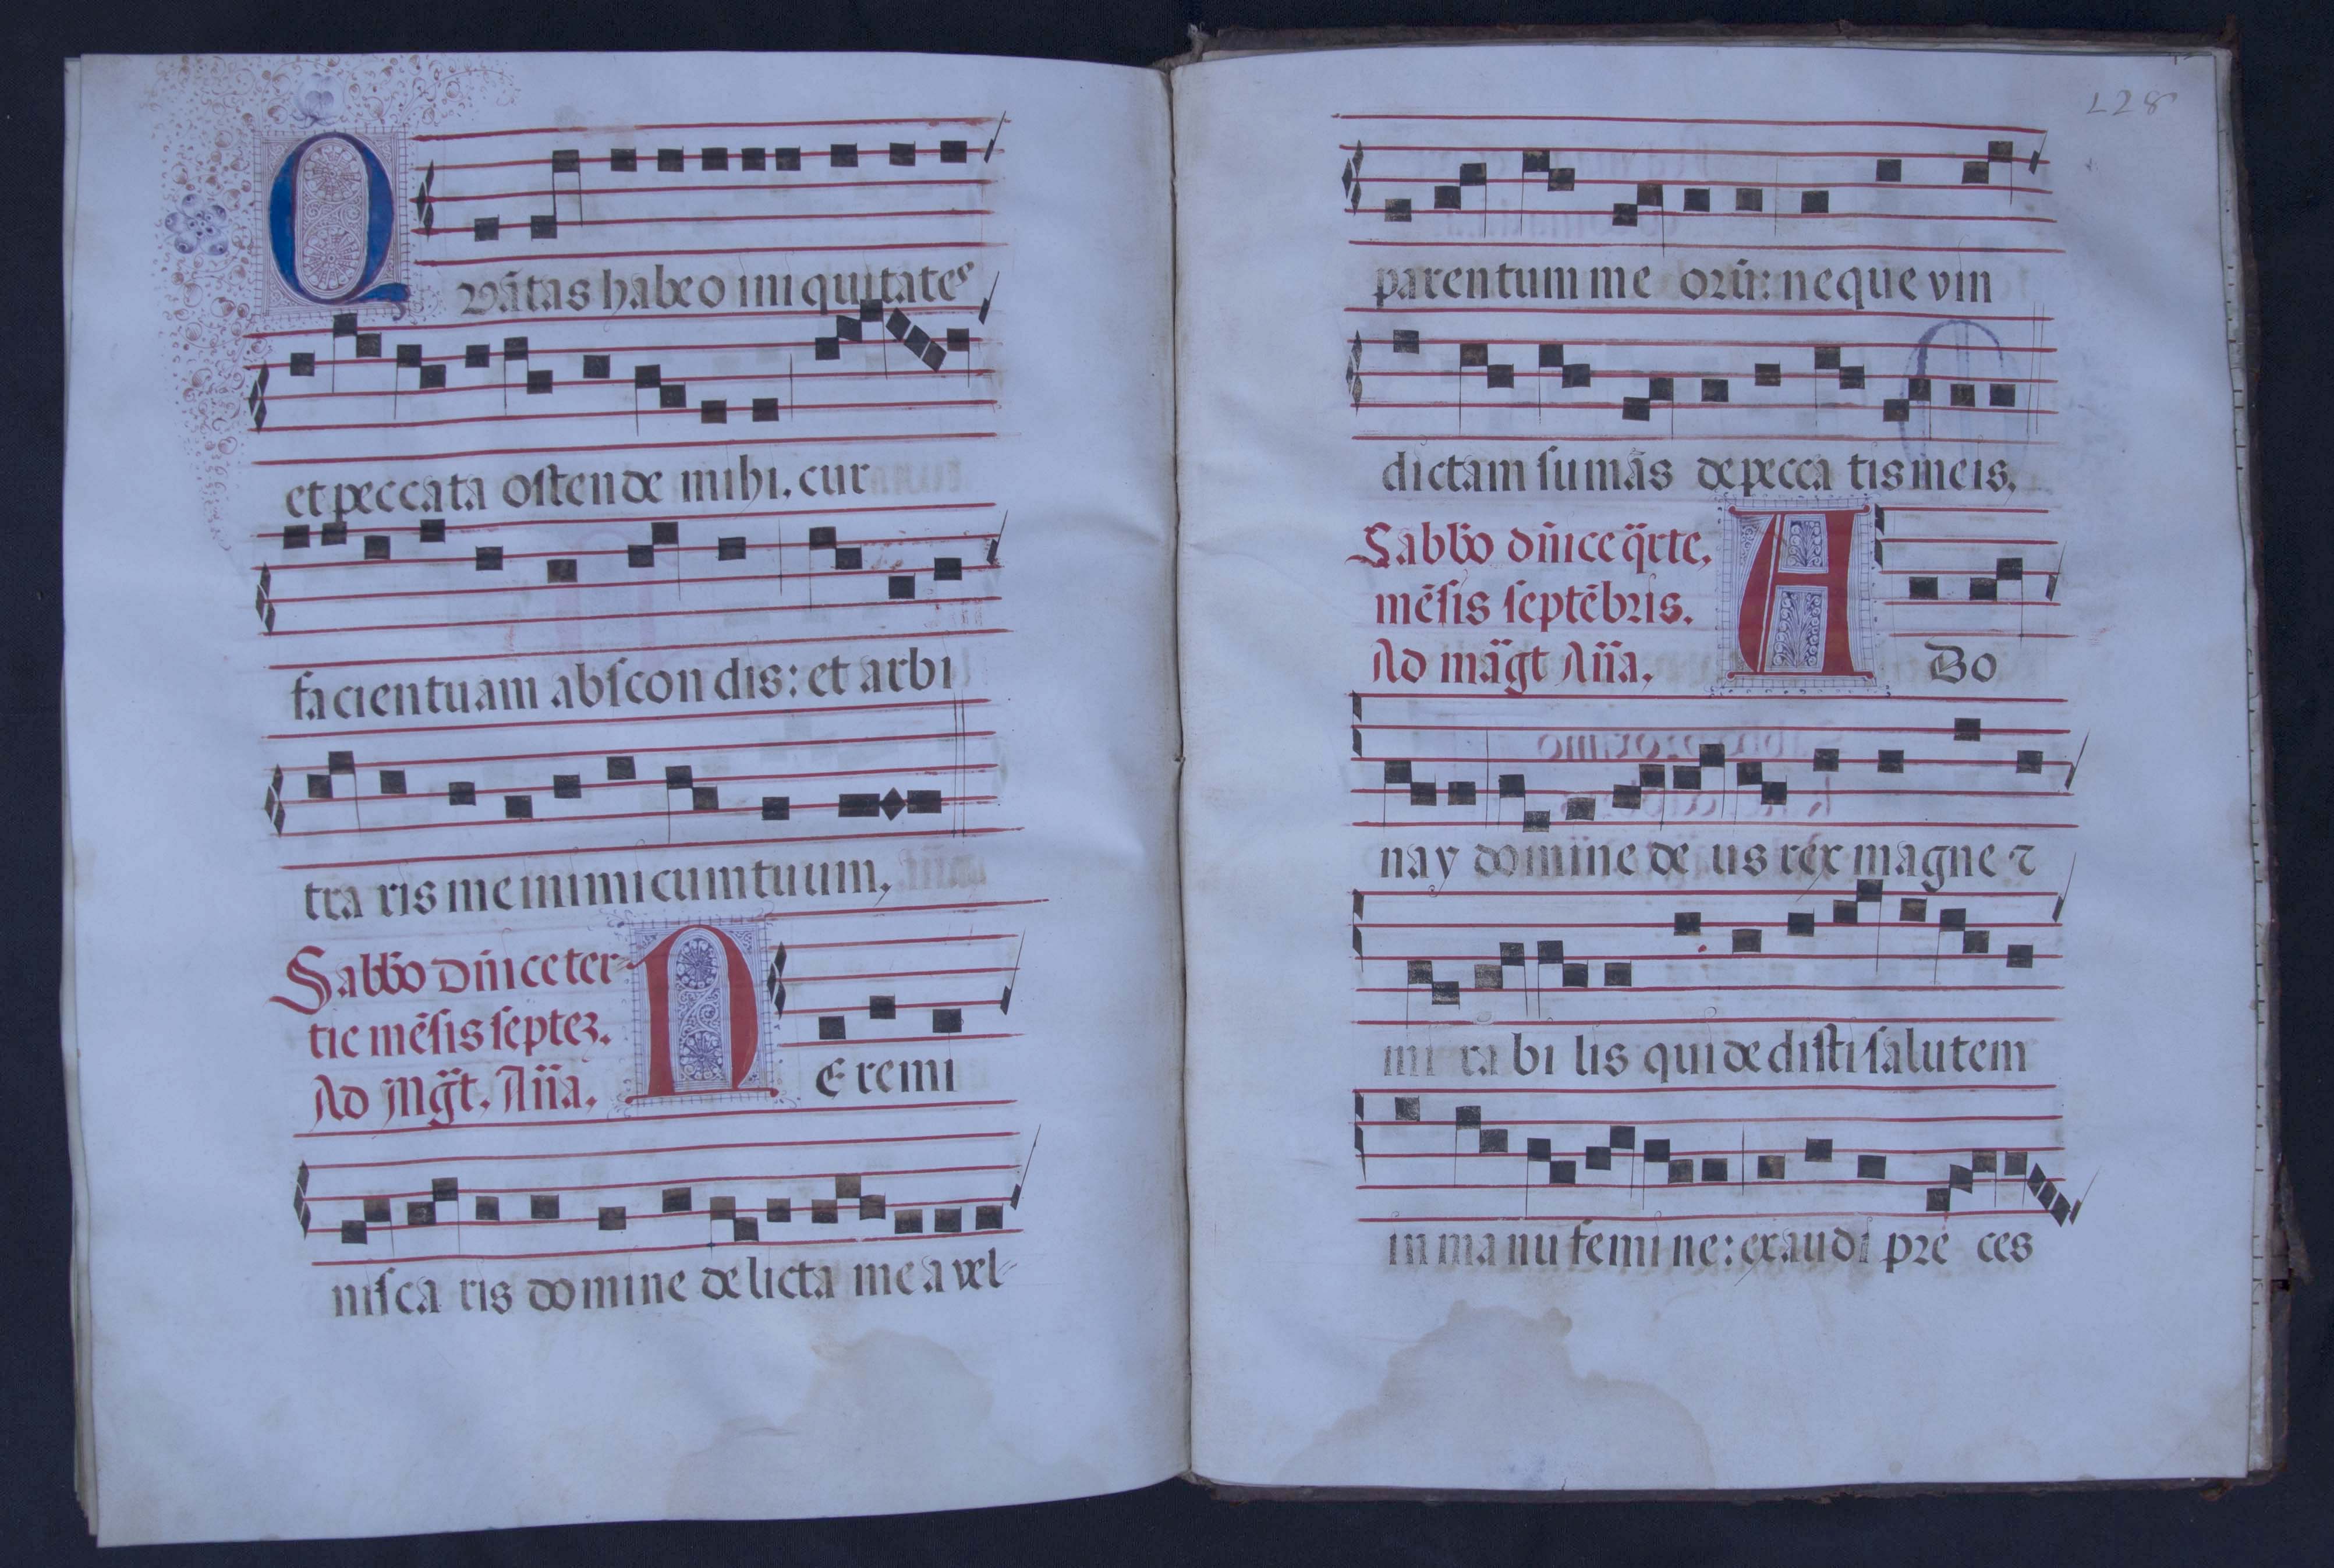 Quãtas habeo iniquitates
et peccata ostende mihi. cur
faciem tuam abscondis: et arbi
tra ris me inimicum tuum.
Sabbo dñice ter
tie mẽsis septeʒ.
Ad Mg̃t. Añа.
NE remi
nisca ris domine delicta mea vel
128
parentum me orũ: neque vin
dictam sumãs de pecca tis meis.
Sabbo dñice q̃rte.
mẽsis septẽbris.
Ad mãgt Aña.
ADo
nay domine de us rex magne ⁊
mi ra bi lis qui dedisti salutem
in ma nu femi ne: exaudi pre ces